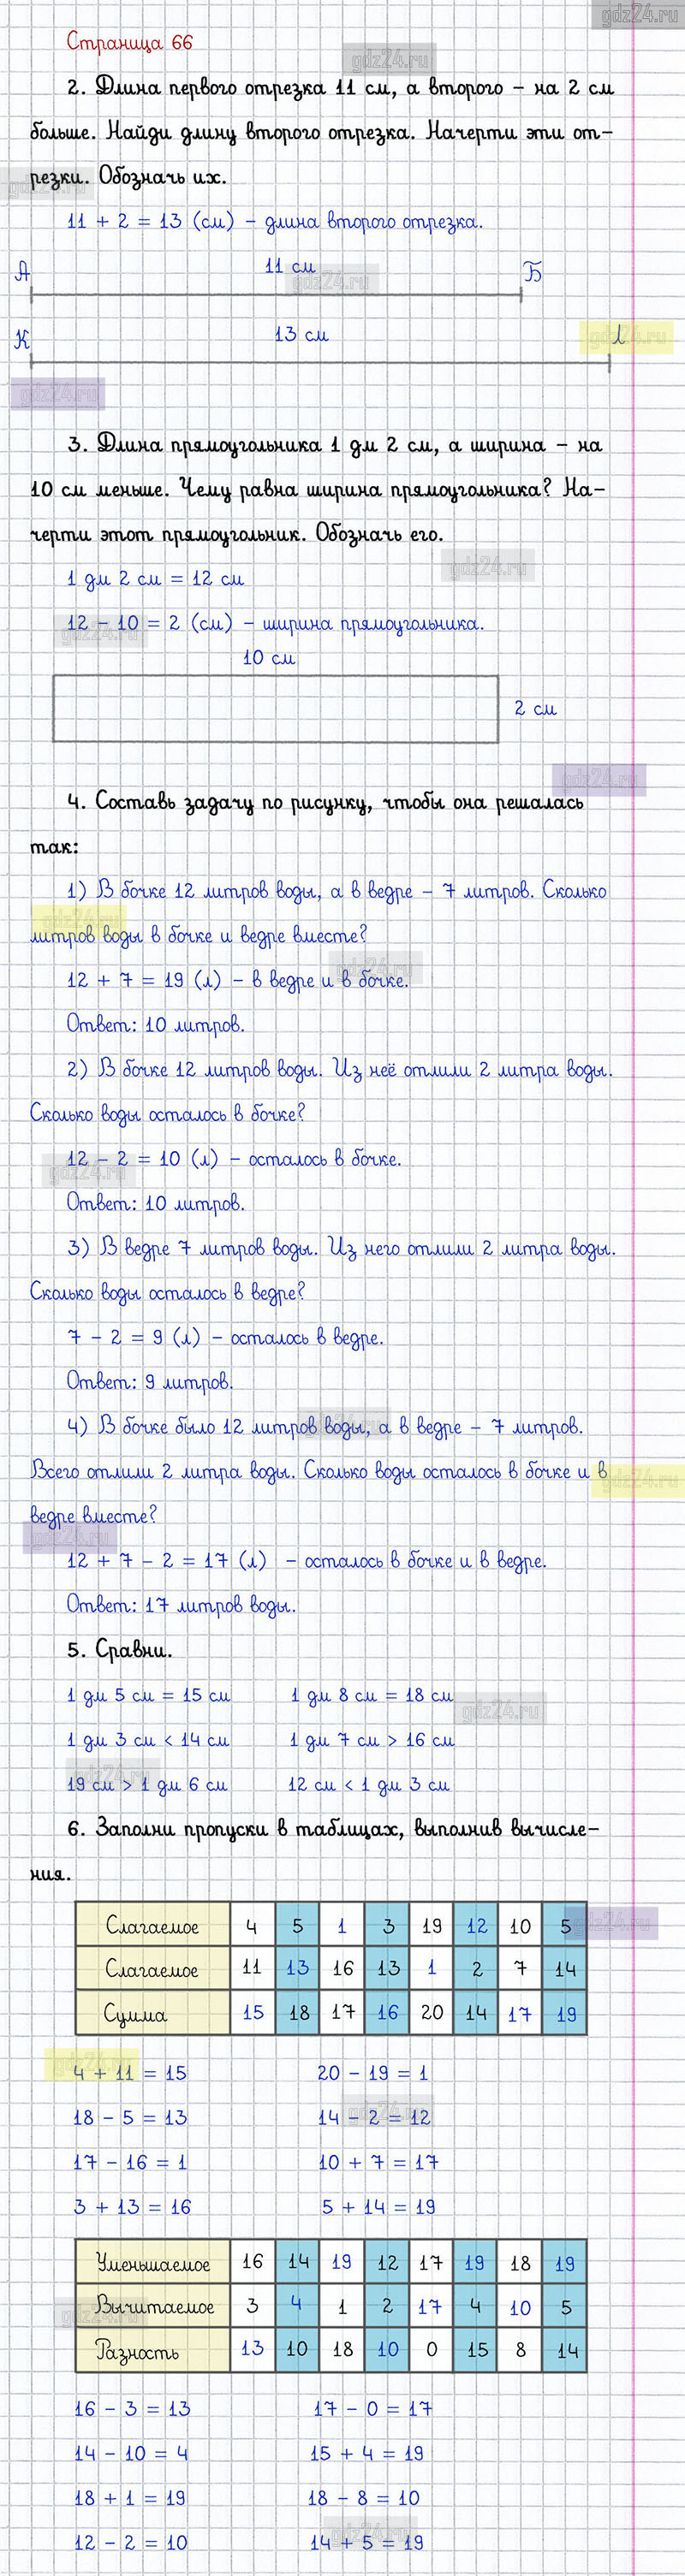 gdz24.ru
Страница 66
gdz24.ru
2. Длина первого отрезка 11 см, а второго – на 2 см
больше. Найди длину второго отрезка. Начерти эти от-
резки. Обозначь их.
gdz24.ru
11 + 2 = 13 (см) – длина второго отрезка.
А 11 см Б
gdz24.ru
К 13 см Л
gdz24.ru
gdz24.ru
3. Длина прямоугольника 1 дм 2 см, а ширина – на
10 см меньше. Чему равна ширина прямоугольника? На-
черти этот прямоугольник. Обозначь его.
gdz24.ru
1 дм 2 см = 12 см
12 – 10 = 2 (см) – ширина прямоугольника.
gdz24.ru
10 см
2 см
gdz24.ru
4. Составь задачу по рисунку, чтобы она решалась
так:
1) В бочке 12 литров воды, а в ведре – 7 литров. Сколько
gdz24.ru
литров воды в бочке и ведре вместе?
gdz24.ru
12 + 7 = 19 (л) – в ведре и в бочке.
Ответ: 10 литров.
2) В бочке 12 литров воды. Из неё отлили 2 литра воды.
Сколько воды осталось в бочке?
12 – 2 = 10 (л) – осталось в бочке.
gdz24.ru
Ответ: 10 литров.
3) В ведре 7 литров воды. Из него отлили 2 литра воды.
Сколько воды осталось в ведре?
7 – 2 = 9 (л) – осталось в ведре.
Ответ: 9 литров.
4) В бочке было 12 литров воды, а в ведре – 7 литров.
gdz24.ru
Всего отлили 2 литра воды. Сколько воды осталось в бочке и в
gdz24.ru
ведре вместе?
gdz24.ru
12 + 7 – 2 = 17 (л) – осталось в бочке и в ведре.
Ответ: 17 литров воды.
5. Сравни.
1 дм 5 см = 15 см 1 дм 8 см = 18 см
gdz24.ru
1 дм 3 см < 14 см 1 дм 7 см > 16 см
gdz24.ru
19 см > 1 дм 6 см 12 см < 1 дм 3 см
6. Заполни пропуски в таблицах, выполнив вычисле-
ния.
Слагаемое 4 5 1 3 19 12 10 5
gdz24.ru
Слагаемое 11 13 16 13 1 2 7 14
Сумма 15 18 17 16 20 14 17 19
gdz24.ru
4 + 11 = 15 20 – 19 = 1
gdz24.ru
18 – 5 = 13 14 – 2 = 12
17 – 16 = 1 10 + 7 = 17
3 + 13 = 16 5 + 14 = 19
Уменьшаемое 16 14 19 12 17 19 18 19
Вычитаемое 3 4 1 2 17 4 10 5
gdz24.ru
Разность 13 10 18 10 0 15 8 14
16 – 3 = 13 17 – 0 = 17
14 – 10 = 4 15 + 4 = 19
18 + 1 = 19 18 – 8 = 10
gdz24.ru
12 – 2 = 10 14 + 5 = 19